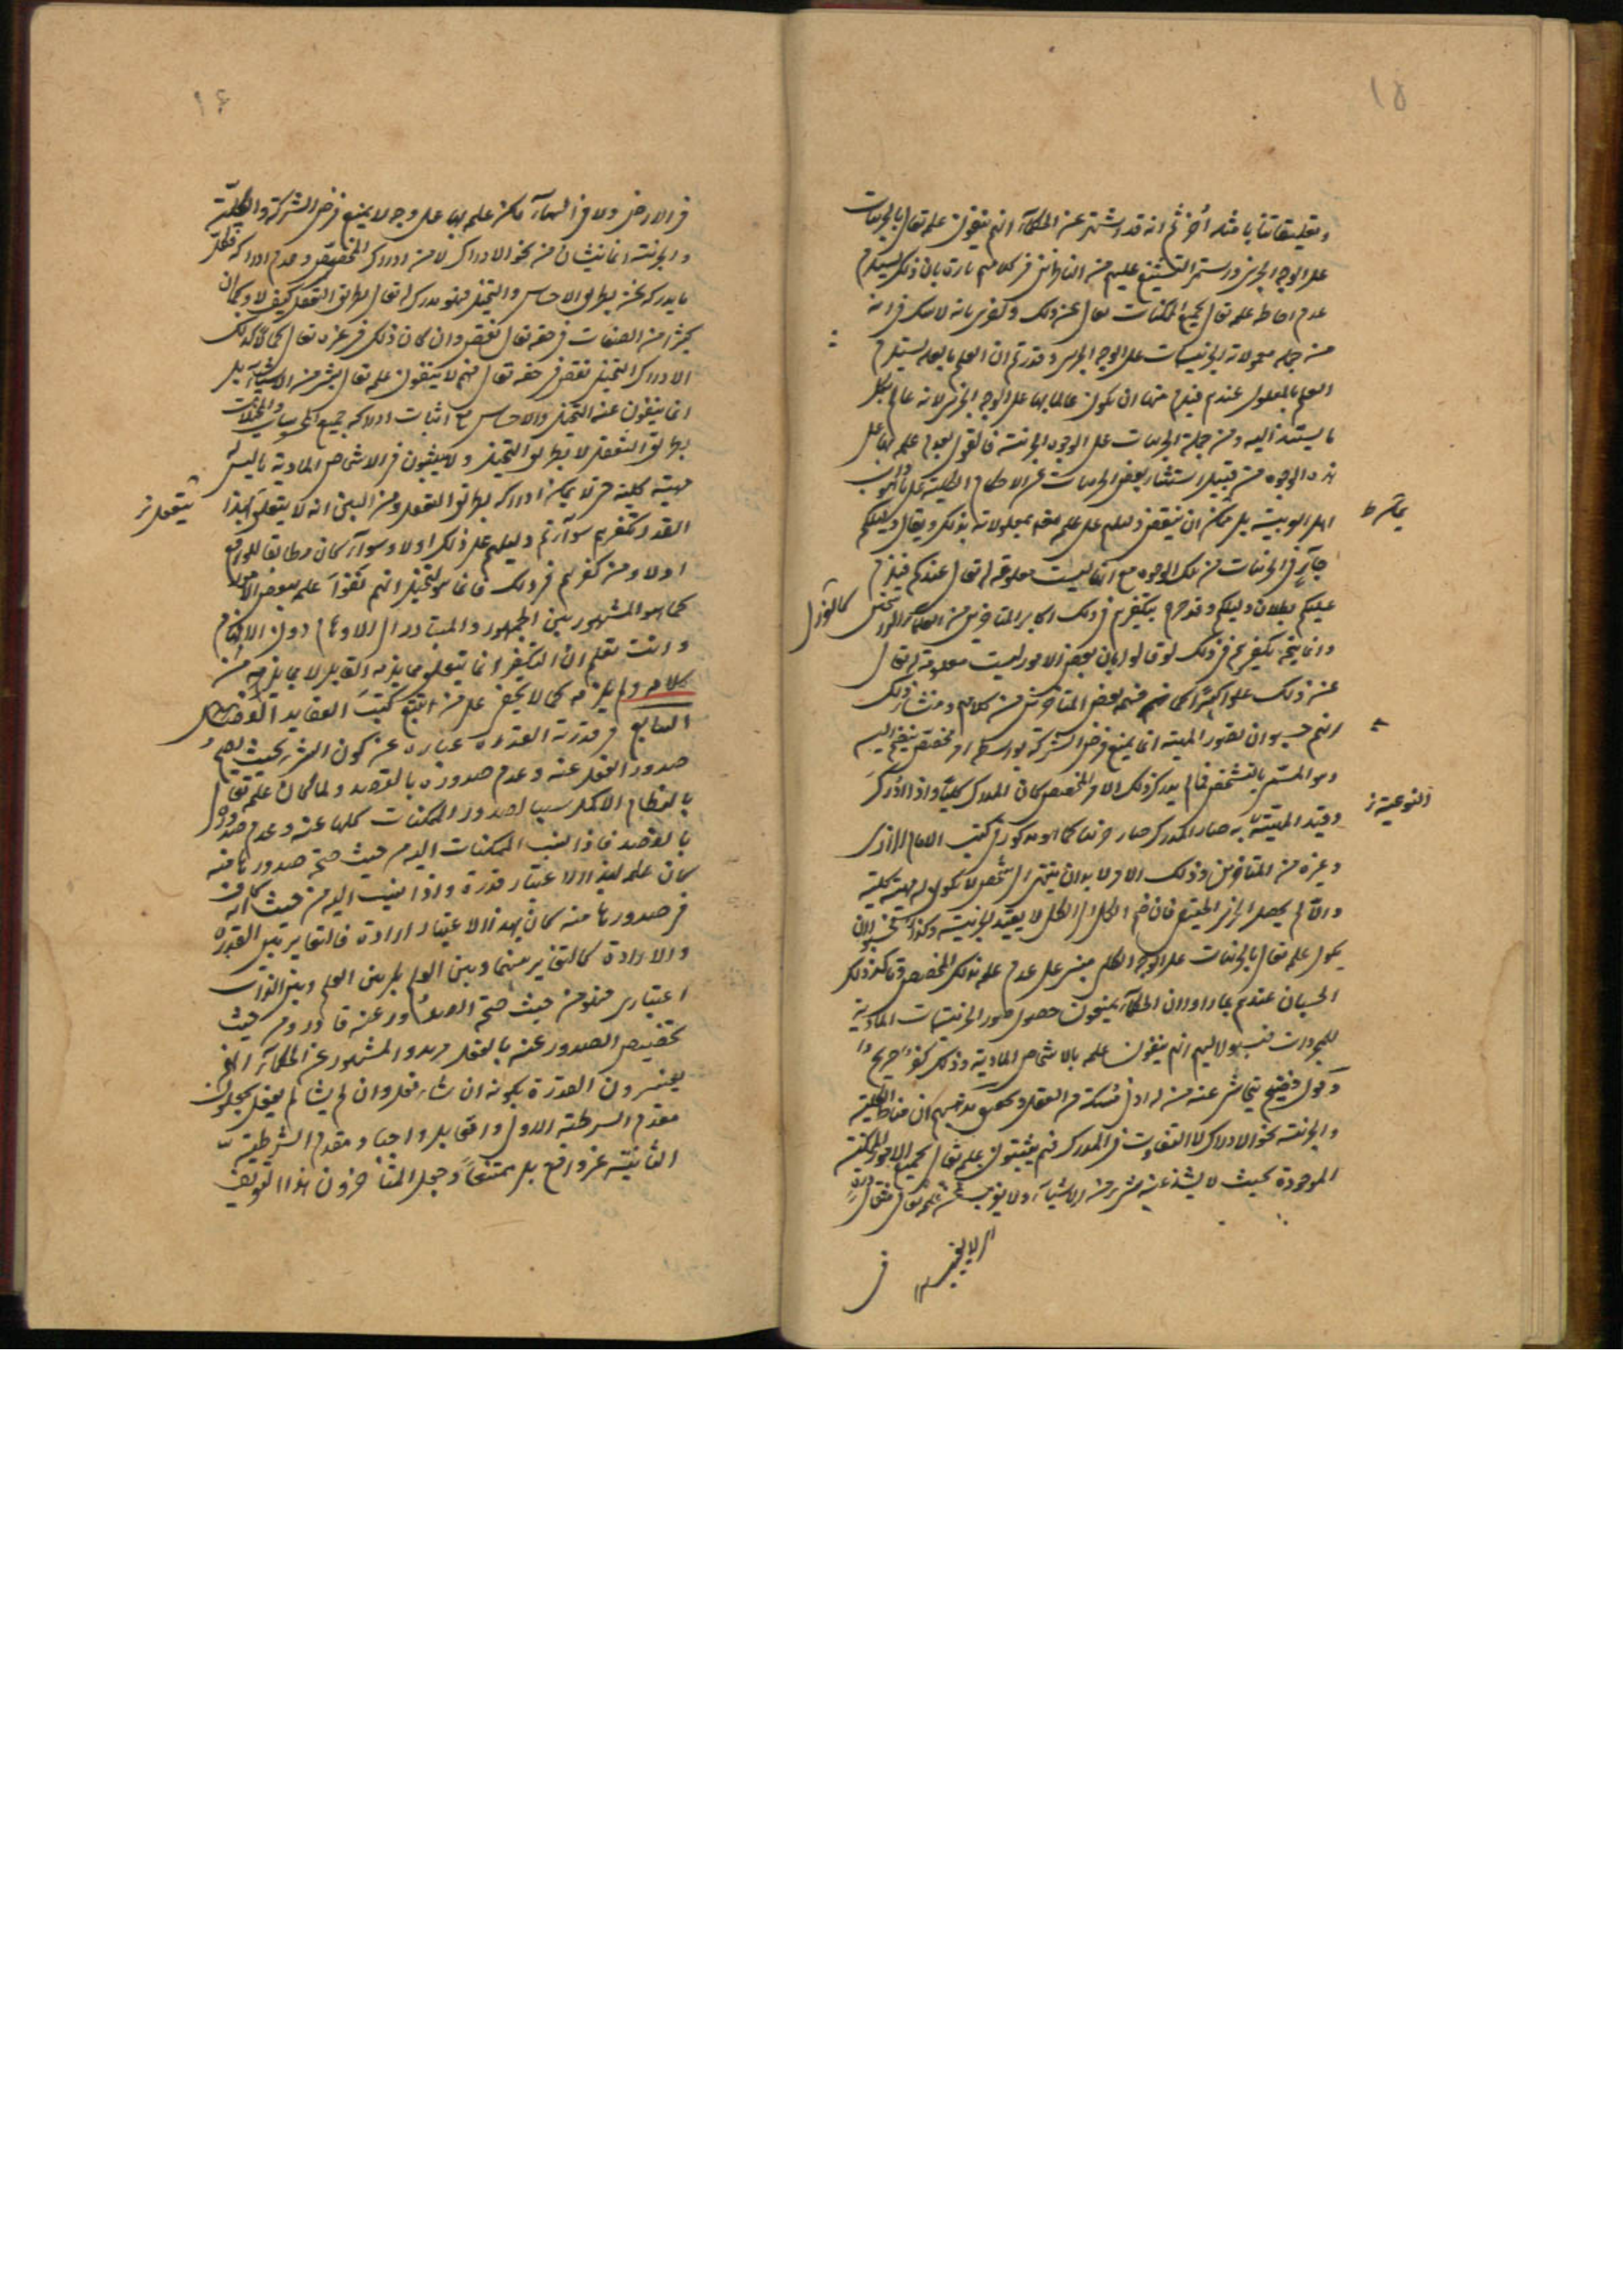 ١٥
وتعليقاتنا بامثله أخر ثم انه قد اشتهر عن الحكماء انهم ينفون علمه تعالى بالجزئيات
على الوجه الجزئى واستمر التشنيع عليهم من الناظرين فى كلامهم تارة بان ذلك يستلزم
عدم احاطة علمه تعالى بجميع الممكنات تعالى عن ذلك واخرى بانه لا شك فى انه
من جملة معلولاته الجزئيات على الوجه الجزئى وقد زعم ان العلم بالعلة يستلزم
العلم بالمعلول عندهم فيلزم منها ان يكون عالما بها على الوجه الجزئى لانه عالم بكل
ما يستند اليه ومن جملة الجزئيات على الوجوه الجزئية فالقول بعدم علمه بها على
هذه الوجوه من قبيل استثناء بعض الجزئيات عن الاحكام الكلية على ما هو داب
اهل العربية بل يمكن ان ينقض دليلهم على علمه بمعلولاته بذلك ويقال دليلكم
جار فى الجزئيات من تلك الوجوه مع انها ليست معلومة له تعالى عندكم فيلزم
عليكم بطلان دليلكم وقد صرح بتكفيرهم فى ذلك اكابر المتاخرين من العلماء
كالغزالى
وانما يتجه تكفيرهم فى ذلك لو قالوا بان بعض الامور ليست معلومة له تعالى
عن ذلك علوا كبيرا كما فهمه بعض المتاخرين من كلامهم ومنشأ ذلك
انهم حسبوا ان تصور المهية انما يمنع فرض الشركة بواسطة امر مخصص ينضم اليه
وهو المسمى بالتشخص فما لم يدرك ذلك الامر المخصص كان المدرك كليا واذا ادرك
النوعية ز
وقيد المهية به صار المدرك جزئيا كما هو مذكور فى كتب الامام الرازى
وغيره من المتاخرين وذلك الامر لا بد ان ينتهى الى شخص لا يكون له مهية كلية
والا لم يحصل الجزئى الحقيقى فان ضم الكلى الى الكلى لا يفيد الجزئية
علمه تعالى بالجزئيات على الوجه الكلى مبنى على عدم علمه بذلك المخصص وتاكد ذلك
الحسبان عندهم بما راوا ان الحكماء يمنعون حصول صور الجزئيات المادية
للمجردات فنسبوا اليهم انهم ينفون علمه بالاشخاص المادية وذلك كفر صريح
وقول فضيح يتحاشى عنه من له ادنى مسكة من العقل وتحقيق مذهبهم ان مناط الكلية
والجزئية نحو الادراك لا التفاوت فى المدرك فهم يثبتون علمه تعالى بجميع الامور الممكنة
الموجودة بحيث لا يشذ عنه شىء من الاشياء ولا يعزب عن علمه تعالى مثقال ذرة
فى
١٦
فى الارض ولا فى السماء لكن علمه بها على وجه لا يمنع فرض الشركة والكلية
والجزئية انما ينشان من نحو الادراك لا من ادراك المخصص وعدم ادراكه فكل
ما يدركه نحن بطريق الاحساس والتخيل فهو مدرك له تعالى بطريق التعقل كيف لا وكما ان
كثيرا من الصفات فى حقه تعالى نقص وان كان ذلك فى غيره تعالى كمالا كذلك
الادراك التخيلى نقص فى حقه تعالى فهم لا ينفون علمه تعالى بشىء من الاشياء بل
انما ينفون عنه التخيل والاحساس مع اثبات ادراكه جميع المحسوسات والمخيلات
بطريق التعقل لا بطريق التخيل ولا يثبتون فى الاشخاص المادية ما ليس
مهية كلية حتى لا يمكن ادراكه بطريق التعقل ومن البين انه لا يتعلق بهذا
القدر تكفيرهم سواء تم دليلهم على ذلك اولا وسواء كان مطابقا للواقع
اولا ومن كفرهم فى ذلك فانما تخيل انهم نفوا علمه ببعض الامور
كما هو المشهور بين الجمهور والمتبادر الى الاوهام دون الافهام
وانت تعلم ان التكفير انما يتعلق بما يلتزمه القايل لا بما يلزم من
كلامه ولم يلتزمه كما لا يخفى على من تتبع كتب العقايد الفصل
السابع فى قدرته القدرة عبارة عن كون الشىء بحيث يصح
صدور الفعل عنه وعدم صدوره بالقصد ولما كان علمه تعالى
بالنظام الاكمل سببا لصدور الممكنات كلها عنه وعدم صدورها
بالقصد فاذا نسب الممكنات اليه من حيث صحة صدورها منه
كان علمه بهذا الاعتبار قدرة واذا نسب اليه من حيث انه كاف
فى صدورها منه كان بهذا الاعتبار ارادة فالتغاير بين القدرة
والارادة كالتغاير بينهما وبين العلم بل بين العلم وبين الذات
اعتبارى فهو من حيث صحة الصدور عنه قادر ومن حيث
تخصيص الصدور عنه بالفعل مريد والمشهور عن الحكماء انهم
يفسرون القدرة بكونه ان شاء فعل وان لم يشا لم يفعل يجعلون
مقدم الشرطية الاولى واقعا بل واجبا ومقدم الشرطية
الثانية غير واقع بل ممتنعا وجعل المتاخرون هذا التعريف